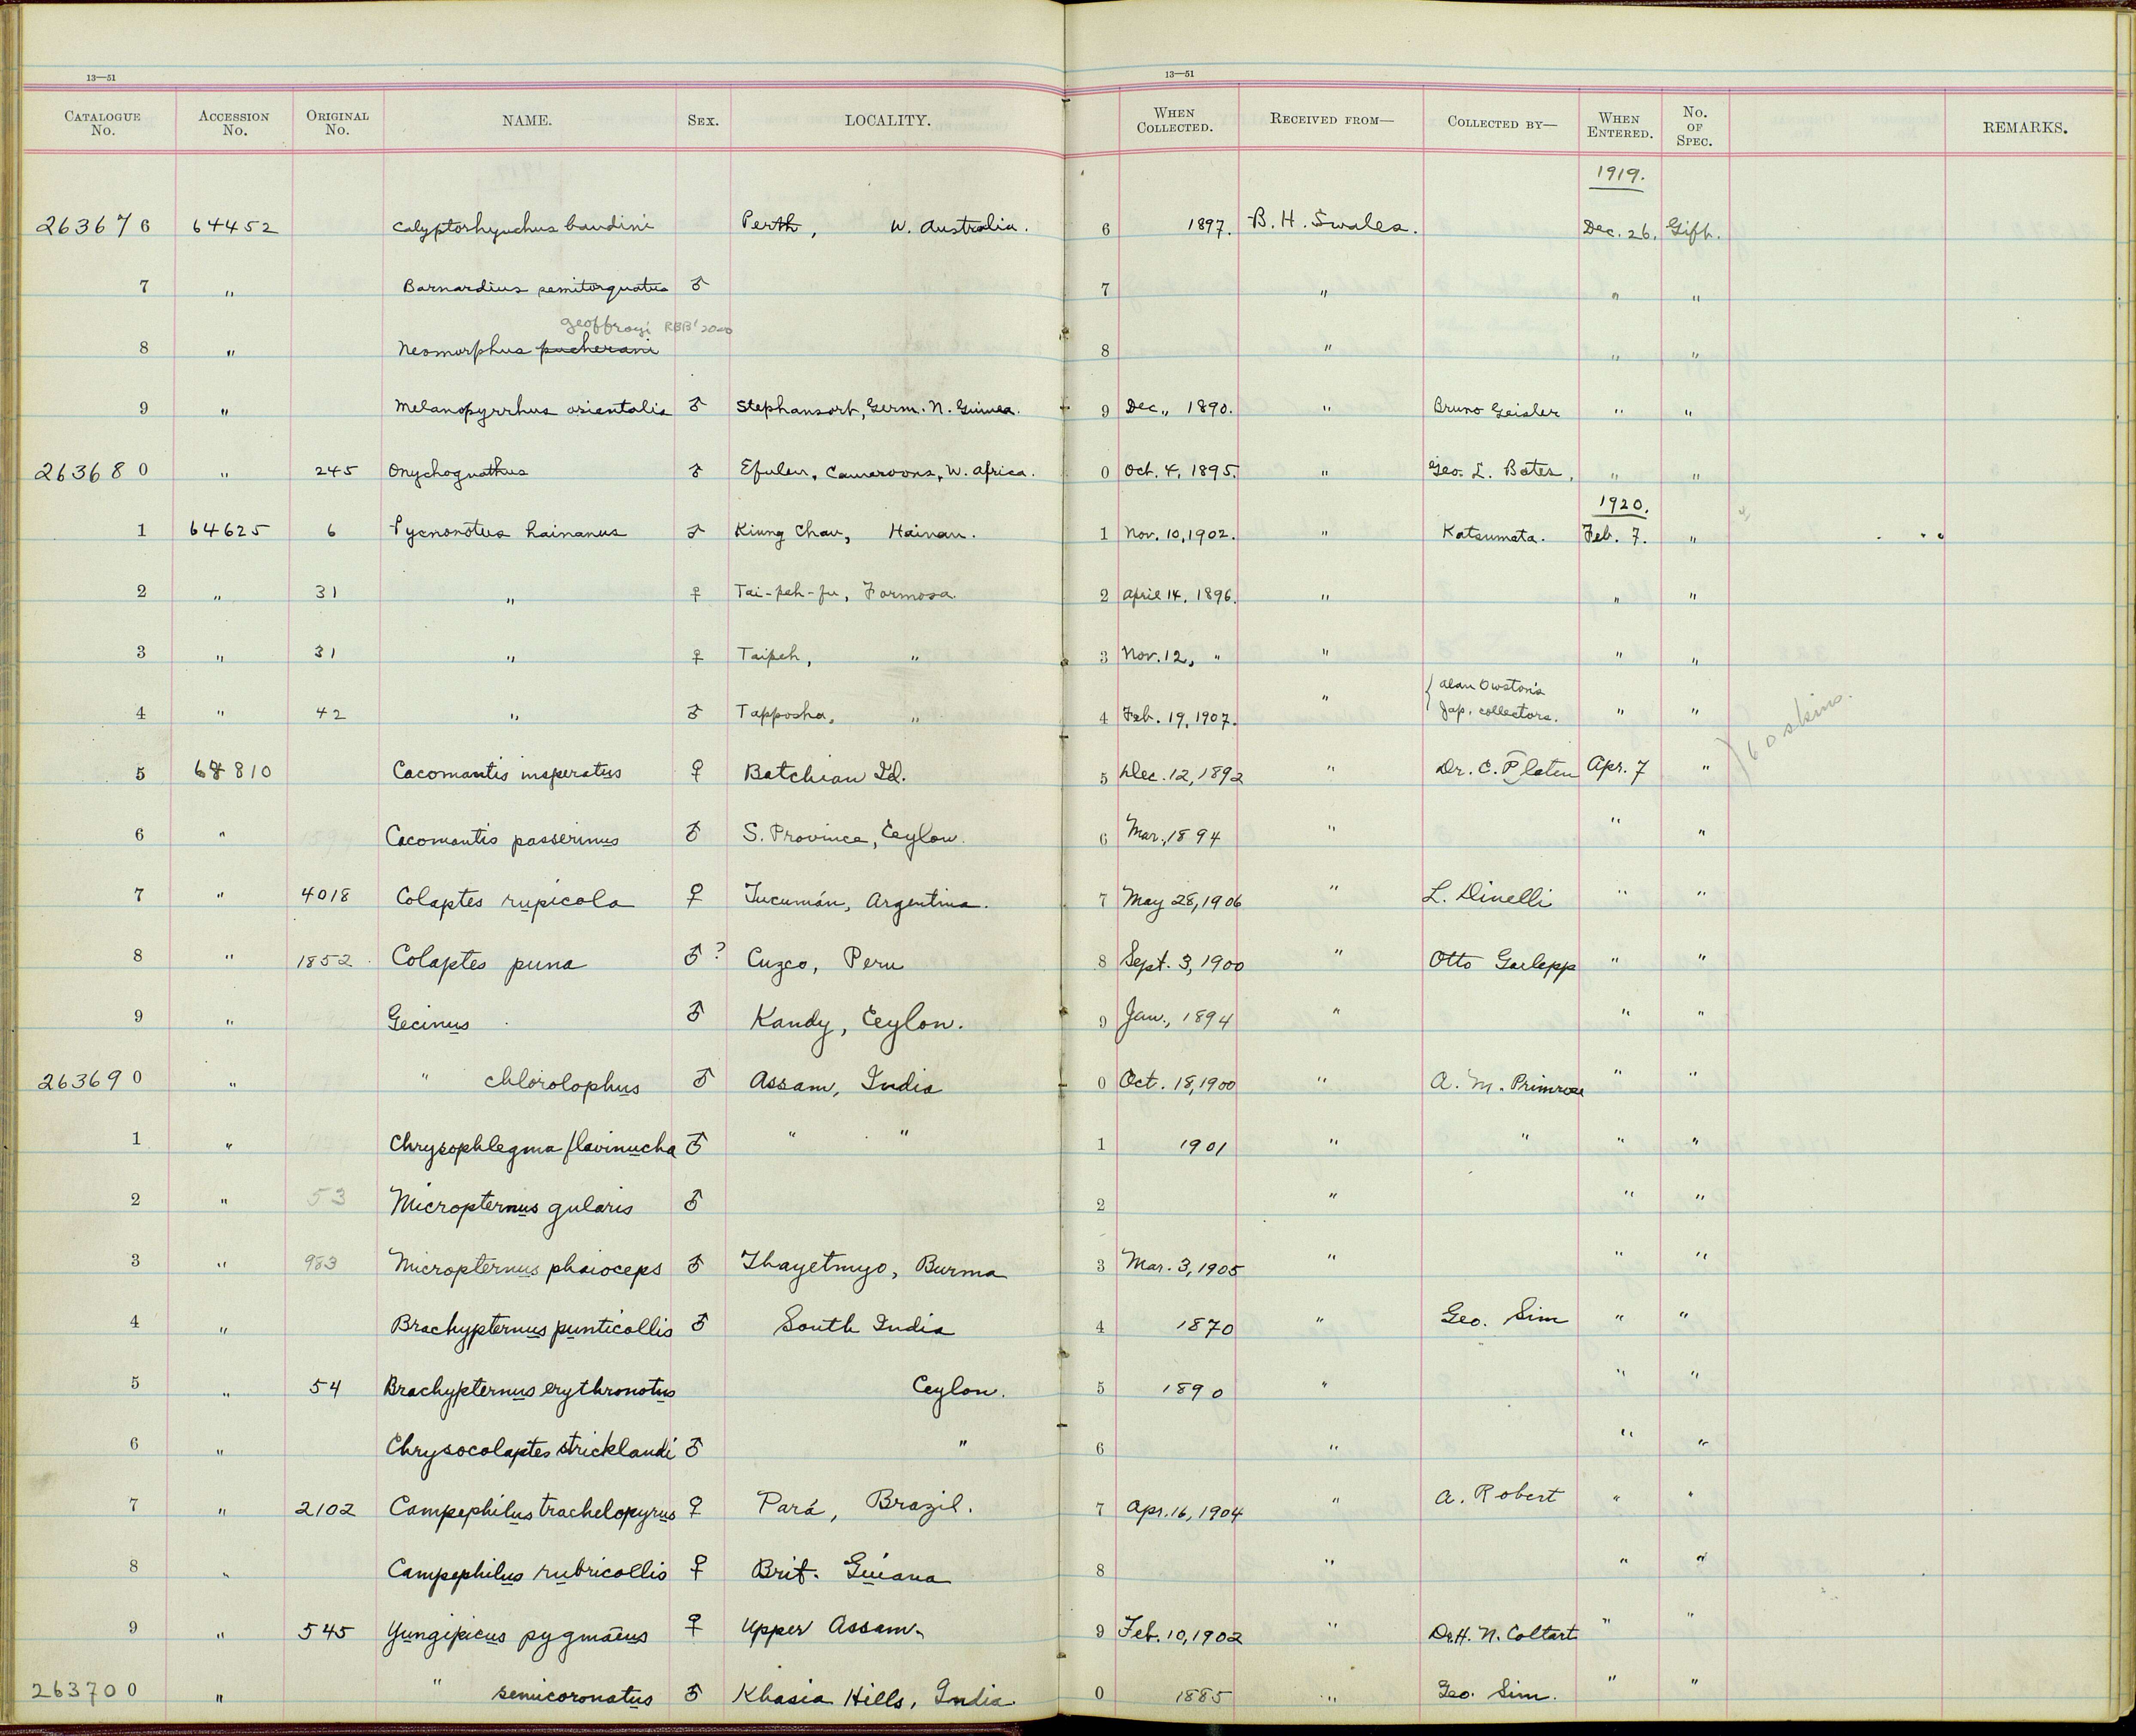 13—51
13—51
CATALOGUE No. ACCESSION No. ORIGINAL No. NAME. SEX. LOCALITY. WHEN COLLECTED. RECEIVED FROM— COLLECTED BY— WHEN ENTERED. No. OF SPEC. REMARKS.
1919.
263676 64452 Calyptorhynchus baudini Perth, W. Australia. 6 1897. B. H. Swales. Dec. 26. Gift.
7 " Barnardius semitorquatus ♂ 7 " " "
geoffroyi RBB' 2000
8 " Neomorphus pucherani 8 " " "
9 " Melanopyrrhus orientalis ♂ Stephansort, Germ. N. Guinea. 9 Dec., 1890. " Bruno Geisler " "
263680 " 245 Onychognathus ♂ Efulen, Cameroons, W. Africa. 0 Oct. 4, 1895. " Geo. L. Bates, " "
1920.
1 64625 6 Pycnonotus hainanus ♂ Kiung Chau, Hainan. 1 Nov. 10, 1902. " Katsumata. Feb. 7. "
2 " 31 " ♀ Tai-peh-fu, Formosa. 2 April 14, 1896. " " "
3 " 31 " ♀ Taipeh, " 3 Nov. 12, " " " "
4 " 42 " ♂ Tapposha, " 4 Feb. 19, 1907. " { Alan Owston's Jap. collectors. " "
60 skins.
5 68810 Cacomantis insperatus ♀ Batchian Id. 5 Dec. 12, 1892 " Dr. C. Platen Apr. 7 "
6 " Cacomantis passerinus ♂ S. Province, Ceylon. 6 Mar., 1894 " " "
7 " 4018 Colaptes rupicola ♀ Tucumán, Argentina. 7 May 28, 1906 " L. Dinelli " "
8 " 1852 Colaptes puna ♂? Cuzco, Peru 8 Sept. 3, 1900 " Otto Garlepp " "
9 " Gecinus ♂ Kandy, Ceylon. 9 Jan., 1894 " " "
263690 " " chlorolophus ♂ Assam, India 0 Oct. 18, 1900 " A. M. Primrose " "
1 " Chrysophlegma flavinucha ♂ " " 1 1901 " " " "
2 " 53 Micropternus gularis ♂ 2 " " "
3 " 983 Micropternus phaioceps ♂ Thayetmyo, Burma 3 Mar. 3, 1905 " " "
4 " Brachypternus punticollis ♂ South India 4 1870 " Geo. Sim " "
5 " 54 Brachypternus erythronotus Ceylon. 5 1890 " " "
6 " Chrysocolaptes stricklandi ♂ " 6 " " "
7 " 2102 Campephilus trachelopyrus ♀ Pará, Brazil. 7 Apr. 16, 1904 " A. Robert " "
8 " Campephilus rubricollis ♀ Brit. Guiana 8 " " "
9 " 545 Yungipicus pygmaeus ♀ Upper Assam. 9 Feb. 10, 1902 " Dr. H. N. Coltart " "
263700 " " semicoronatus ♂ Khasia Hills, India. 0 1885 " Geo. Sim. " "